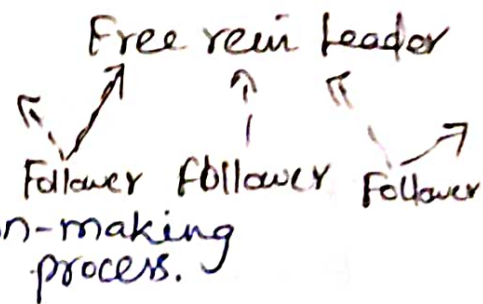 Free rein Leader
Follower Follower Follower
n-making
process.